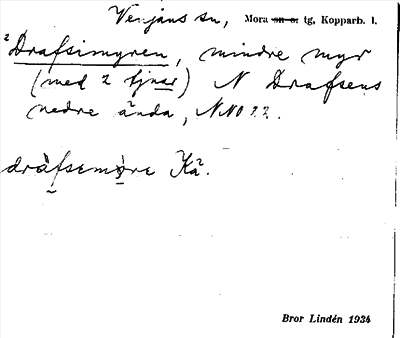 Venjans sn, Mora sn o. tg, Kopparb. l.
²Drafsimyren, mindre myr
(med 2 tjnar) N Drafsens
nedre ända, NNO 22.
dràfsemỳre Kä².
Bror Lindén 1934